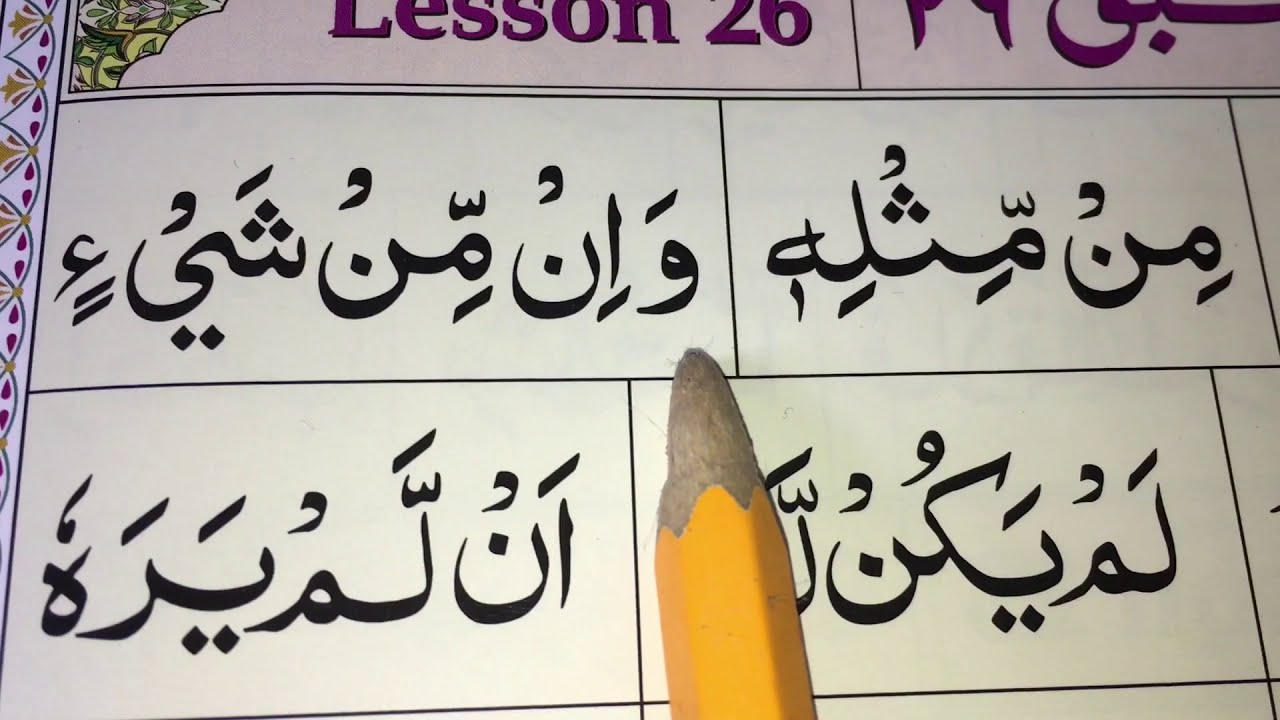 Lesson 26 سبق ۲۶
مِنْ مِّثْلِهٖ وَاِنْ مِّنْ شَيْءٍ
لَمْ يَكُنْ اَنْ لَّمْ يَرَهٗ